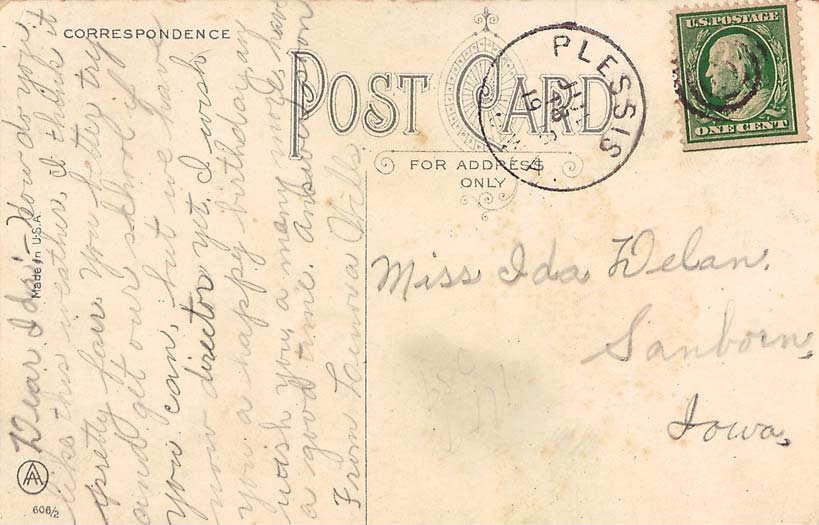 CORRESPONDENCE
POST CARD
FOR ADDRESS
ONLY
PLESSIS
19
U.S. POSTAGE
ONE CENT
Dear Ida:- How do you
like this weather, I think it
pretty fair. You better try
and get our school if
you can, but we have
now director yt. I wish
you a happy birthday an
wish you a many more, have
a good time. Answer soon
From Lenora Wills
Miss Ida Delan.
Sanborn,
Iowa,
Made in U.S.A.
AA
606/2